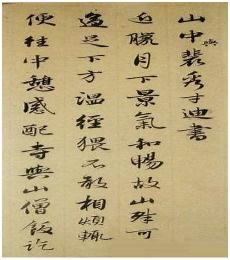 山中與裴秀才迪書
近臘月下景氣和暢故山殊可
過足下方溫經猥不敢相煩輒
便往中憩感配寺與山僧飯訖